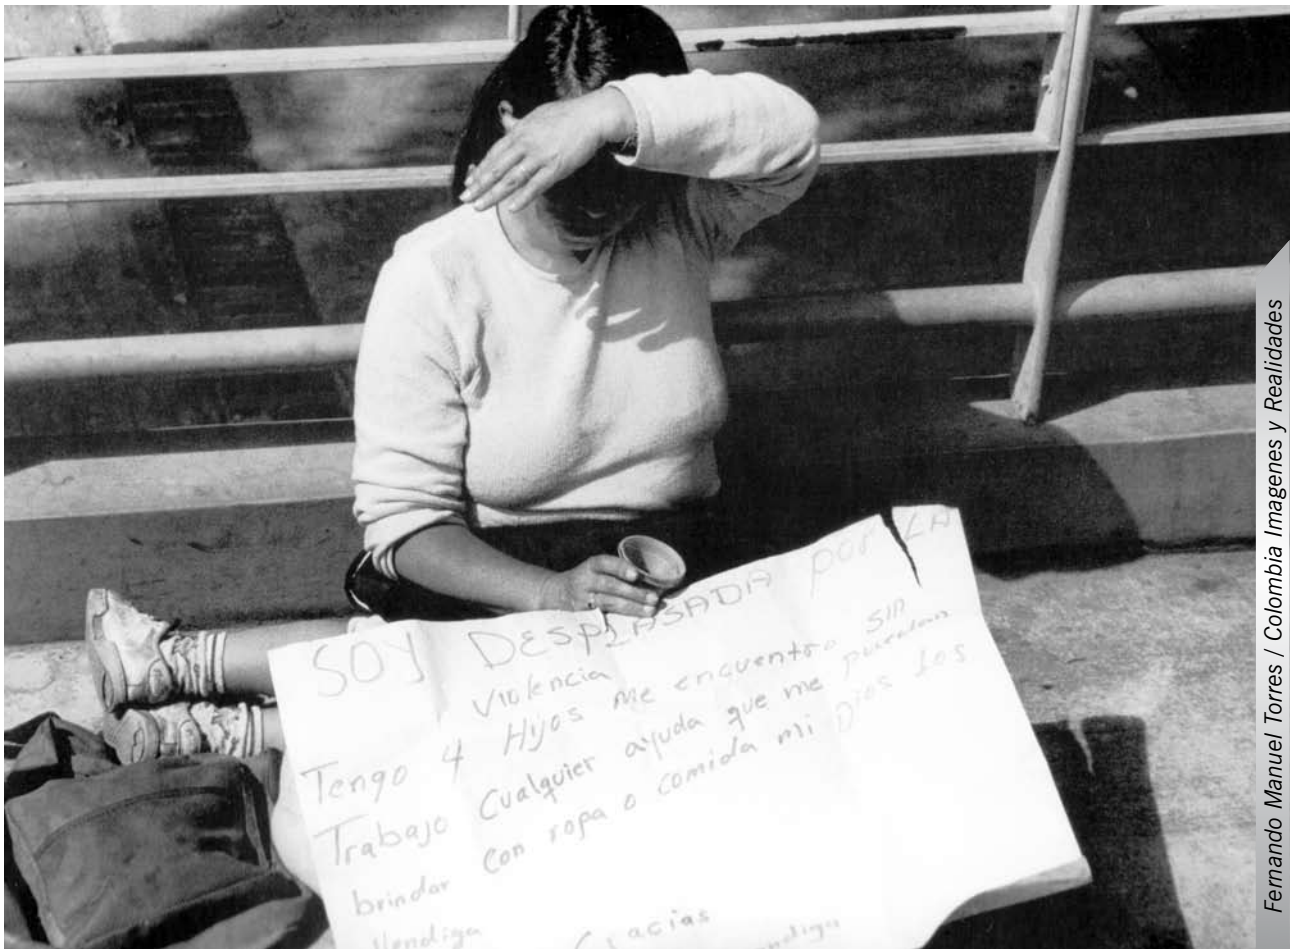 SOY DESPLASADA POR LA
Violencia
Tengo 4 Hijos me encuentro sin
Trabajo Cualquier ayuda que me puedan
brindar con ropa o comida mi Dios Los
Vendiga
Gracias
vendiga
Fernando Manuel Torres / Colombia Imagenes y Realidades